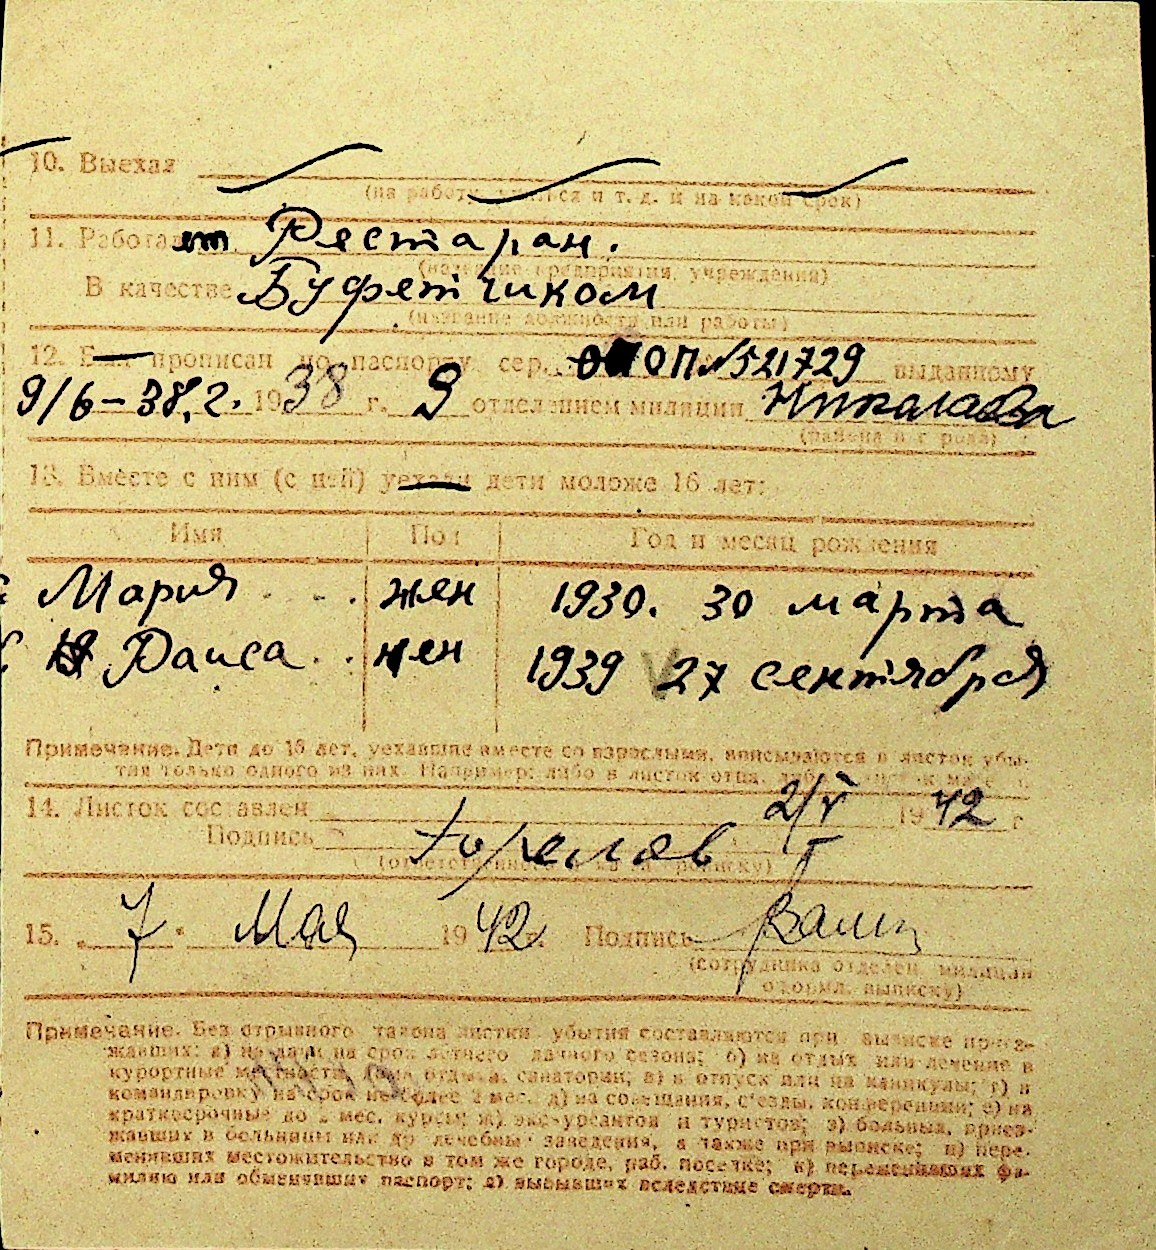 10. Выехал
(на работу, учиться и т. д. и на какой срок)
11. Работает Рестаран.
(название предприятия, учреждения)
В качестве Буфетчиком
(название должности или работы)
12. прописан по паспорту сер. ОП №521729 выданному
9/6-38.г. 1938 г. 9 отделением милиции Николаева
(района и города)
13. Вместе с ним (с ней) уехали дети моложе 16 лет:
Имя Пол Год и месяц рождения
Мария жен 1930. 30 марта
Раиса жен 1939 27 сентября
Примечание. Дети до 16 лет, уехавшие вместе со взрослыми, вписываются в листок убы-
тия только одного из них. Например: либо в листок отца, либо в листок матери.
14. Листок составлен 2/V 1942 г
Подпись
15. 7. Мая 1942 г. Подпись
(сотрудника отделен. милиции
оформл. выписку)
Примечание. Без отрывного талона листки убытия составляются при выписке приез-
жавших: а) на дачи на срок летнего дачного сезона; б) на отдых или лечение в
курортные местности, дома отдыха, санатории; в) в отпуск или на каникулы; г) в
командировку на срок не более 2 мес. д) на совещания, с'езды, конференции; е) на
краткосрочные до 2 мес. курсы; ж) экскурсантов и туристов; з) больных, приез-
жавших в больницы или др. лечебные заведения, а также при выписке; и) пере-
менивших местожительство в том же городе, раб. поселке; к) переменивших фа-
милию или обменявших паспорт; л) выбывших вследствие смерти.